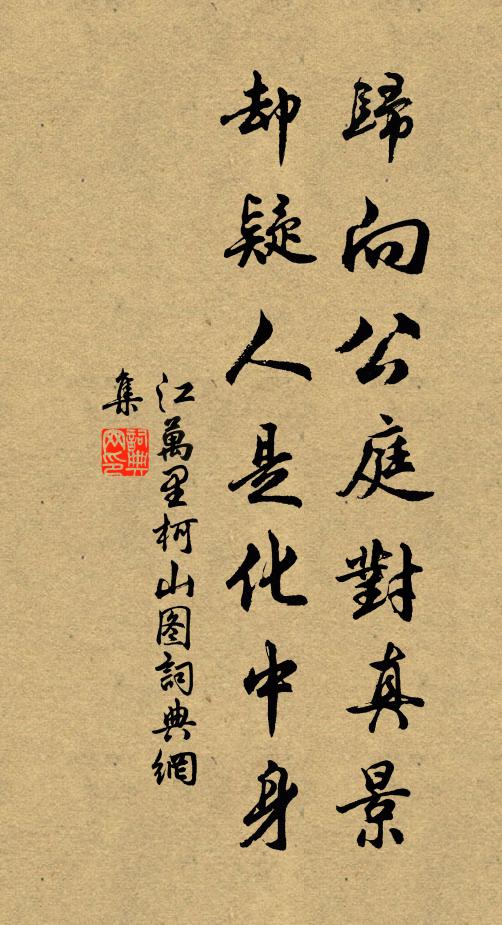 歸向公庭對真景
却疑人是化中身
江萬里柯山图詞典網
集
詞典网印